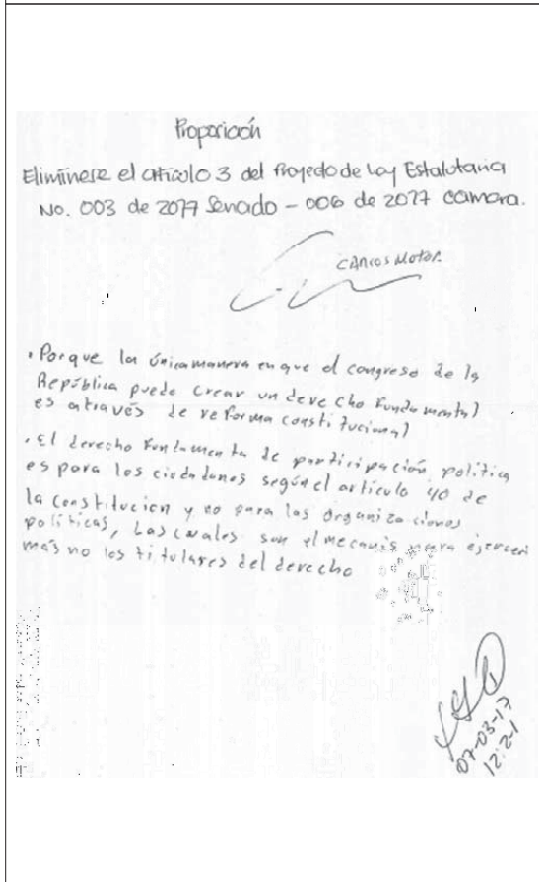 Proposición
Elimínese el artículo 3 del Proyecto de Ley Estatutaria
No. 003 de 2017 Senado - 006 de 2017 Cámara.
CARLOS MOTOA.
• Porque la única manera en que el congreso de la
República puede crear un derecho fundamental
es através de reforma constitucional
• El derecho fundamental de participación política
es para los ciudadanos según el artículo 40 de
la constitución y no para las organizaciones
políticas, Las cuales son el mecanis para ejercer
más no los titulares del derecho
07-03-17
12:21